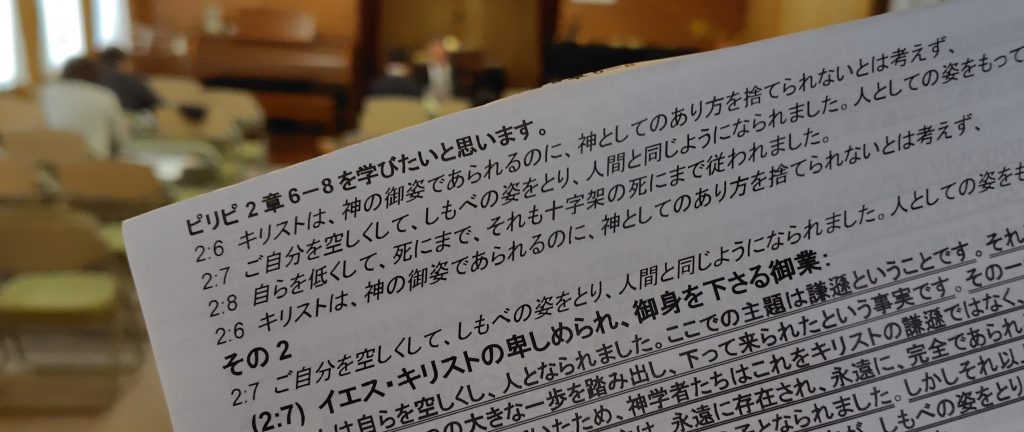 ピリピ2章6－8を学びたいと思います。
2:6 キリストは、神の御姿であられるのに、神としてのあり方を捨てられないとは考えず、
2:7 ご自分を空しくして、しもべの姿をとり、人間と同じようになられました。人としての姿をもって
2:8 自らを低くして、死にまで、それも十字架の死にまで従われました。
2:6 キリストは、神の御姿であられるのに、神としてのあり方を捨てられないとは考えず、
その2
2:7 ご自分を空しくして、しもべの姿をとり、人間と同じようになられました。人としての姿をも
(2:7) イエス・キリストの卑しめられ、御身を下さる御業：
は自らを空しくし、人となられました。ここでの主題は謙遜ということです。それ
の大きな一歩を踏み出し、下って来られたという事実です。その一
いたため、神学者たちはこれをキリストの謙遜ではなく、
は、永遠に存在され、永遠に、完全であられ
となられました。しかしそれ以上
が、しもべの姿をとり